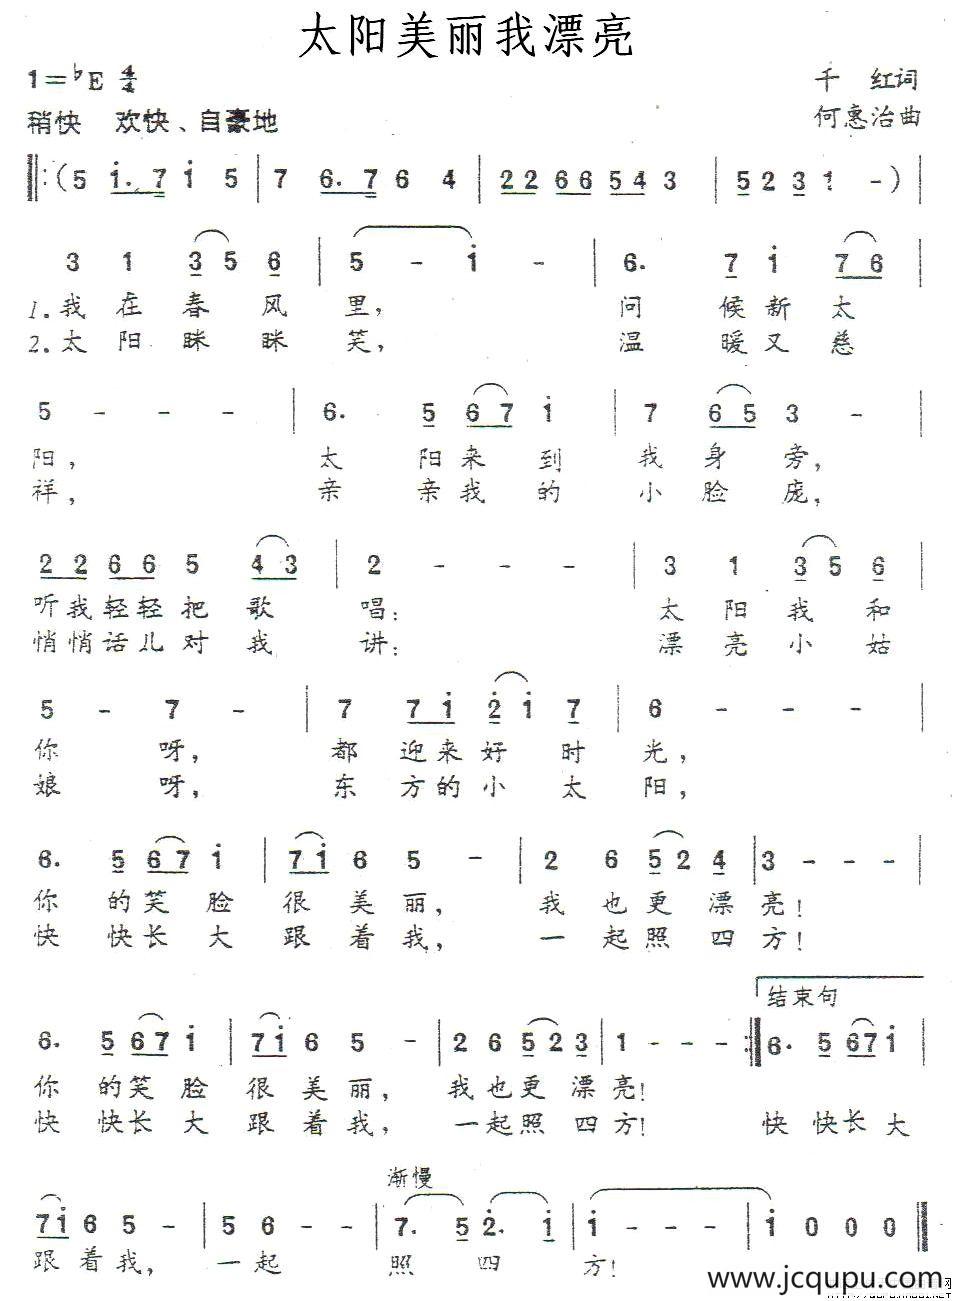 太阳美丽我漂亮
1=♭E 4/4
千 红词
稍快 欢快、自豪地
何惠治曲
‖:(5 1̇. 7 1̇ 5 | 7 6. 7 6 4 | 2 2 6 6 5 4 3 | 5 2 3 1 -)|
3 1 3 5 6 | 5 - 1̇ - | 6. 7 1̇ 7 6 |
1.我在春风里, 问候新太
2.太阳眯眯笑, 温暖又慈
5 - - - | 6. 5 6 7 1̇ | 7 6 5 3 - |
阳, 太阳来到我身旁,
祥, 亲亲我的小脸庞,
2 2 6 6 5 4 3 | 2 - - - | 3 1 3 5 6 |
听我轻轻把歌唱: 太阳我和
悄悄话儿对我讲: 漂亮小姑
5 - 7 - | 7 7 1̇ 2̇ 1̇ 7 | 6 - - - |
你呀, 都迎来好时光,
娘呀, 东方的小太阳,
6. 5 6 7 1̇ | 7 1̇ 6 5 - | 2 6 5 2 4 | 3 - - - |
你的笑脸很美丽, 我也更漂亮!
快快长大跟着我, 一起照四方!
结束句
6. 5 6 7 1̇ | 7 1̇ 6 5 - | 2 6 5 2 3 | 1 - - - :‖ 6. 5 6 7 1̇ |
你的笑脸很美丽, 我也更漂亮!
快快长大跟着我, 一起照四方! 快快长大
渐慢
7 1̇ 6 5 - | 5 6 - - | 7. 5 2̇. 1̇ | 1̇ - - - | 1̇ 0 0 0 ‖
跟着我, 一起照四方!
www.jcqupu.com